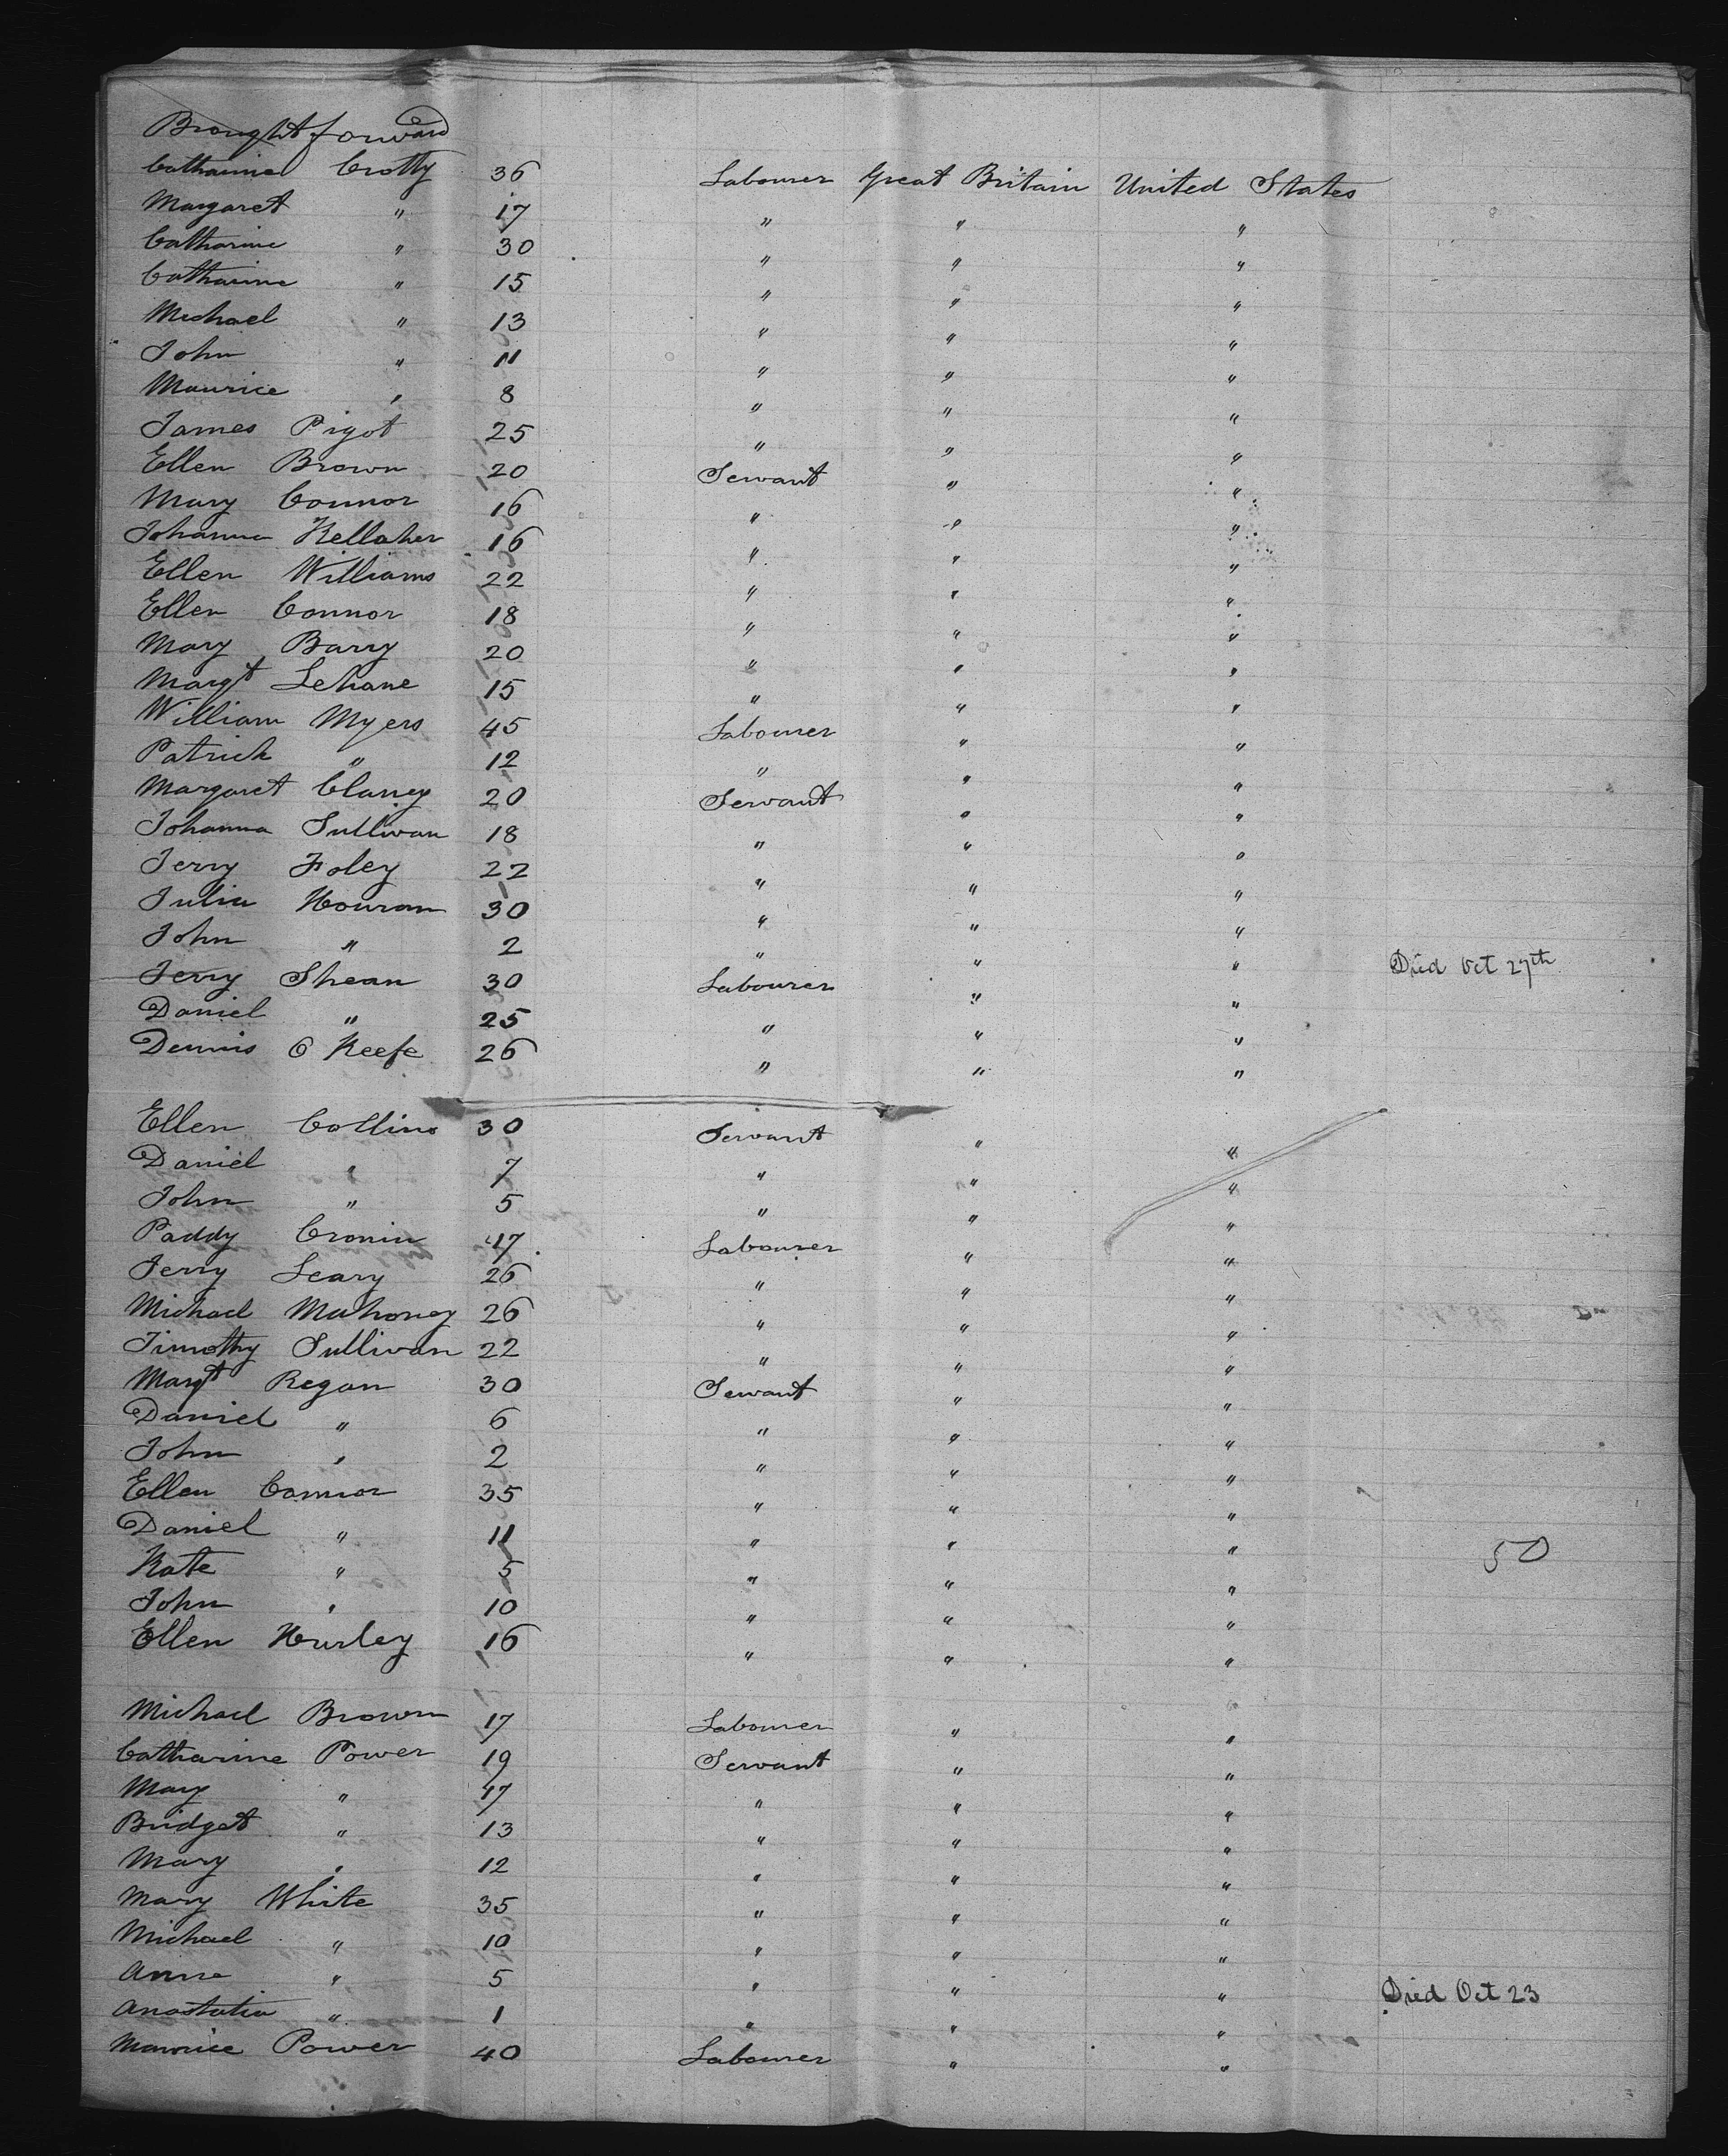 Brought forward
Catharine Crotty 36 Labourer Great Britain United States
Margaret " 17 " " "
Catharine " 30 " " "
Catharine " 15 " " "
Michael " 13 " " "
John " 11 " " "
Maurice " 8 " " "
James Pigot 25 " " "
Ellen Brown 20 Servant " "
Mary Connor 16 " " "
Johanna Kellaher 16 " " "
Ellen Williams 22 " " "
Ellen Connor 18 " " "
Mary Barry 20 " " "
Margt Lehane 15 " " "
William Myers 45 Labourer " "
Patrick " 12 " " "
Margaret Clancy 20 Servant " "
Johanna Sullivan 18 " " "
Jerry Foley 22 " " "
Julia Houran 30 " " "
John " 2 " " " Died Oct 27th
Jerry Shean 30 Labourer " "
Daniel " 25 " " "
Dennis O Keefe 26 " " "
Ellen Collins 30 Servant " "
Daniel " 7 " " "
John " 5 " " "
Paddy Cronin 17 Labourer " "
Jerry Leary 26 " " "
Michael Mahoney 26 " " "
Timothy Sullivan 22 " " "
Margt Regan 30 Servant " "
Daniel " 6 " " "
John " 2 " " "
Ellen Connor 35 " " "
Daniel " 11 " " " 50
Kate " 5 " " "
John " 10 " " "
Ellen Hurley 16 " " "
Michael Brown 17 Labourer " "
Catharine Power 19 Servant " "
Mary " 17 " " "
Bridget " 13 " " "
Mary " 12 " " "
Mary White 35 " " "
Michael " 10 " " "
Anne " 5 " " " Died Oct 23
Anastatia " 1 " " "
Maurice Power 40 Labourer " "